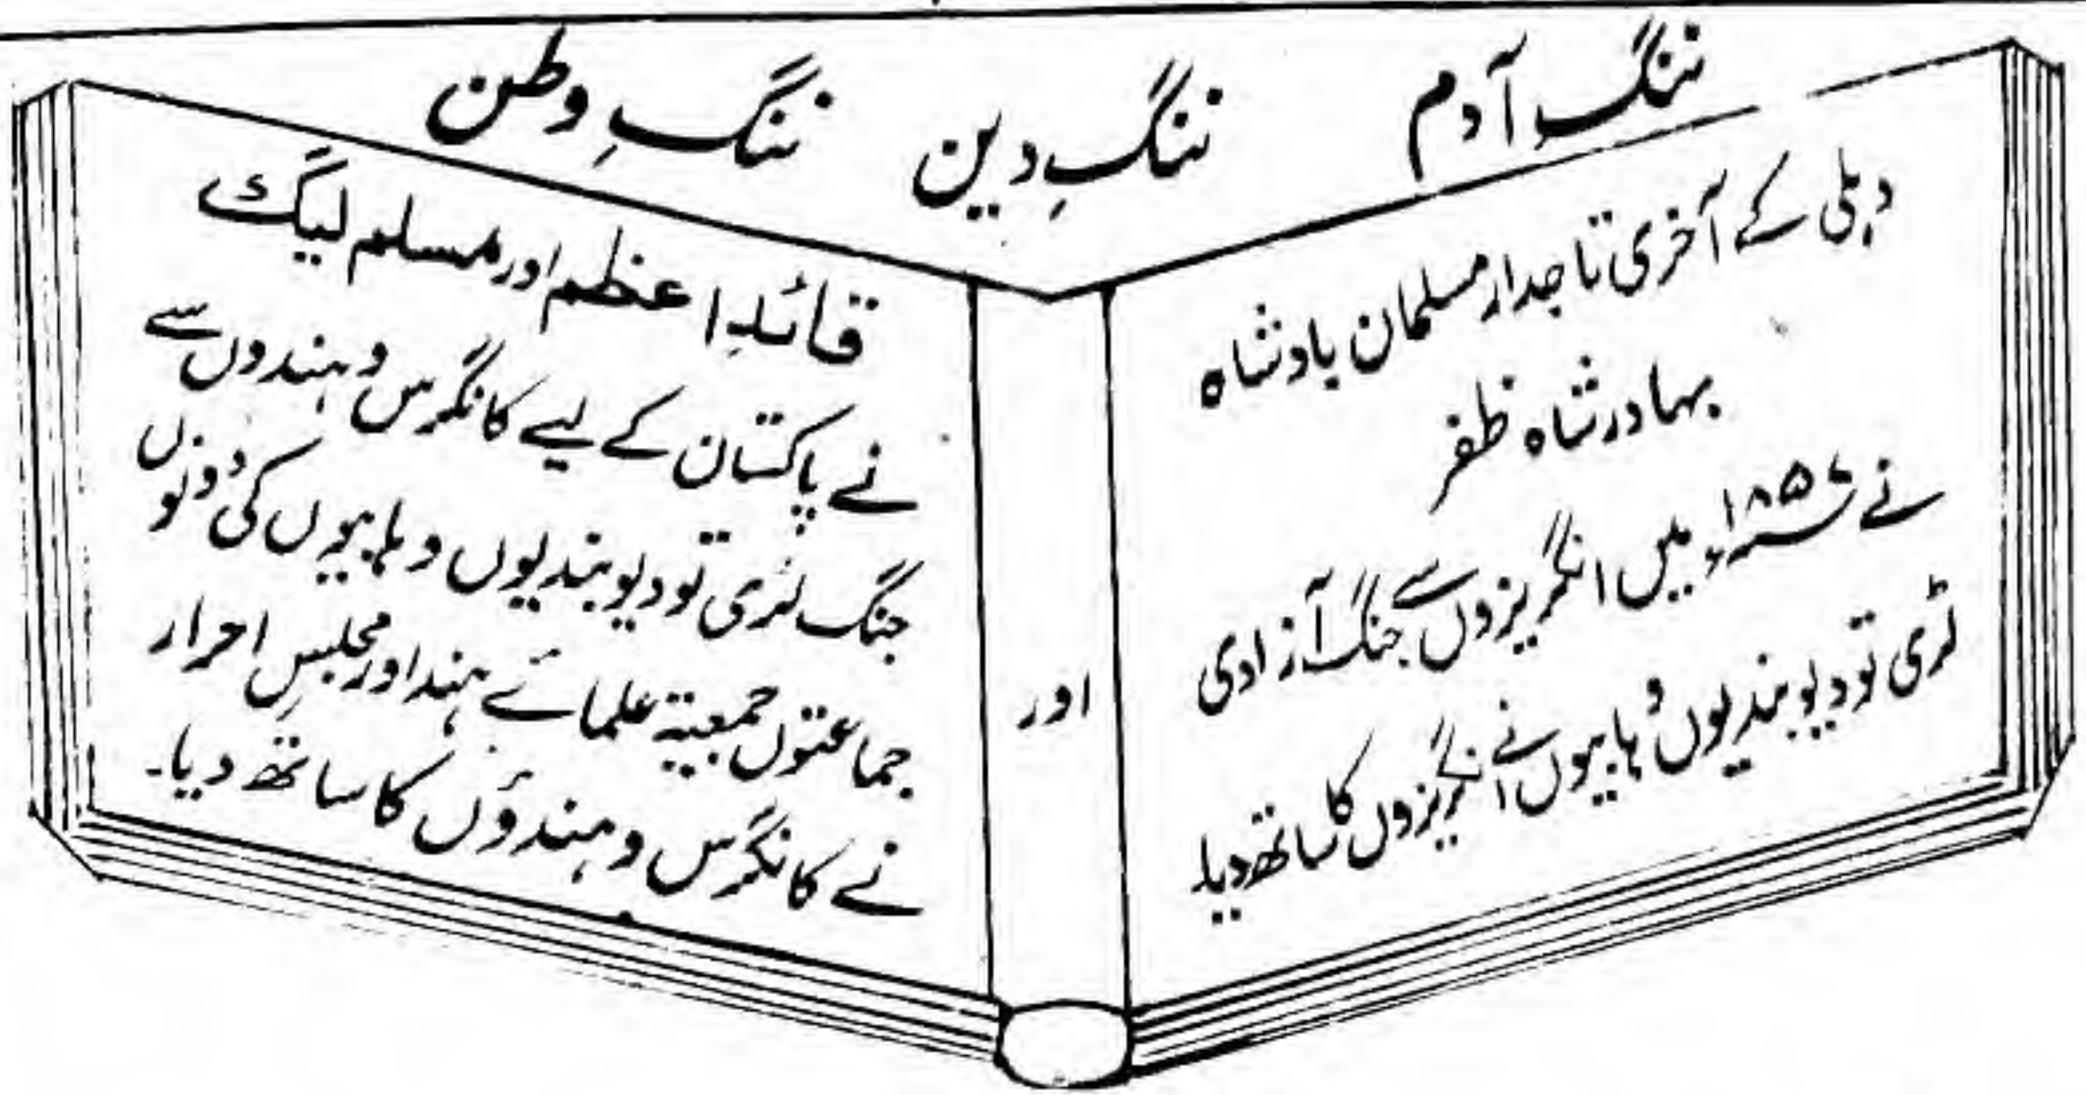 ننگِ آدم ننگِ دین ننگِ وطن
دہلی کے آخری تاجدار مسلمان بادشاہ
بہادر شاہ ظفر
نے ۱۸۵۷ء میں انگریزوں سے جنگ آزادی
لڑی تو دیوبندیوں وہابیوں نے انگریزوں کا ساتھ دیا۔
اور
قائدِ اعظم اور مسلم لیگ
نے پاکستان کے لیے کانگرس و ہندوں سے
جنگ لڑی تو دیوبندیوں وہابیوں کی دونوں
جماعتوں جمعیتہ علمائے ہند اور مجلسِ احرار
نے کانگرس و ہندوؤں کا ساتھ دیا۔